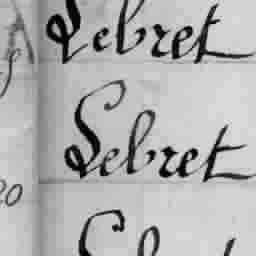 Lebret
Lebret
20